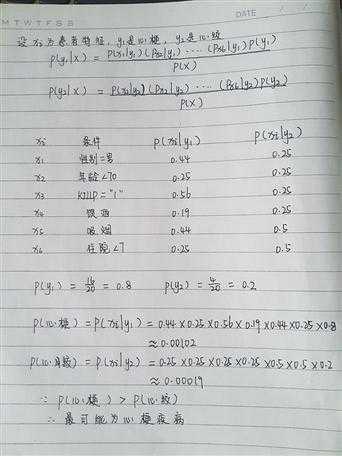 MTWTFSS DATE
设x₂为患者特征, y₁是心梗, y₂是心绞
P(y₁|X) = P(x₁|y₁)(Px₂|y₁)····(Px₆|y₁)P(y₁) / P(X)
P(y₂|X) = P(x₁|y₂)(Px₂|y₂)····(Px₆|y₂)P(y₂) / P(X)
xᵢ 条件 P(xᵢ|y₁) P(xᵢ|y₂)
x₁ 性别=男 0.44 0.25
x₂ 年龄<70 0.25 0.25
x₃ KILLP="1" 0.56 0.25
x₄ 饮酒 0.19 0.25
x₅ 吸烟 0.44 0.5
x₆ 住院<7 0.25 0.5
P(y₁) = 16/20 = 0.8 P(y₂) = 4/20 = 0.2
P(心梗) = P(xᵢ|y₁) = 0.44×0.25×0.56×0.19×0.44×0.25×0.8
≈0.00102
P(心绞) = P(xᵢ|y₂) = 0.25×0.25×0.25×0.25×0.5×0.5×0.2
≈0.00019
∵ P(心梗) > P(心绞)
∴ 最可能为心梗疾病